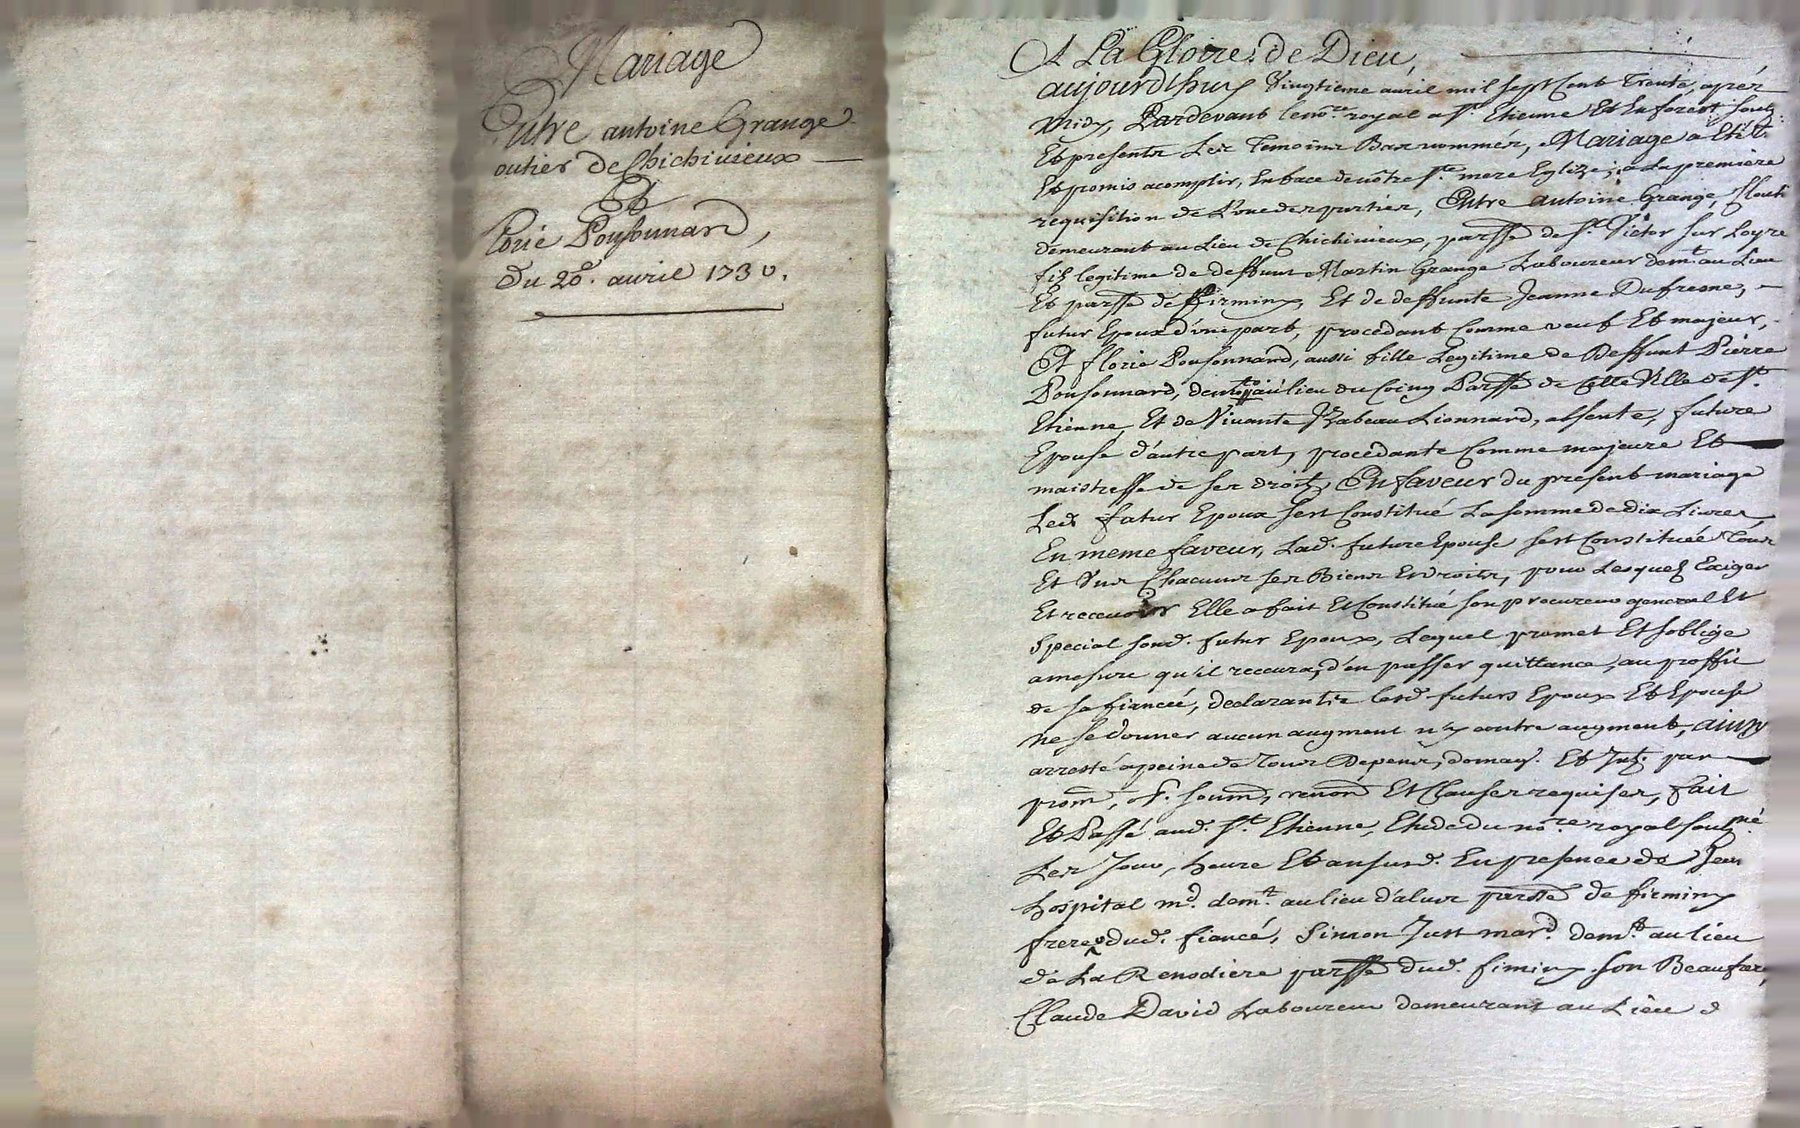 Mariage
Entre antoine Grange
outier de Chichivieux
Et
florie Ponsonnard,
Du 20e. avril 1730.
A La Gloire de Dieu,
aujourd'huy Vingtieme avril mil sept Cent Trente, aprés
Midy, Pardevant le nore. royal a St. Etienne Et En forest sousné.
Et presents Les Temoins Bas nommés, Mariage a Eté
Et promis acomplir, En face de nôtre Ste. mere Eglize, a La premiere
requisition de L'une des parties, Entre antoine Grange,
demeurant au Lieu de Chichivieux, parsse de St. Victor sur Loyre
fils legitime de deffunt Martin Grange Laboureur demt. au Lieu
Et parsse de firminy, Et de deffunte Jeanne Dufresne,
futur Epoux d'une part, procedant Comme veuf Et majeur,
Et florie Ponsonnard, aussi fille Legitime de Deffunt Pierre
Ponsonnard, au lieu du Coing Parsse de Cette Ville de St.
Etienne, Et de Vivante Izabeau Lionnard, absente, future
Epouse d'autre part, procedante Comme majeure Et
maistresse de ses droits, En faveur du present mariage
Led. futur Epoux s'est Constitué La somme de dix Livres,
En meme faveur, Lad. future Epouse s'est Constituée Tous
Et Uns Chacuns ses Biens Et droits, pour Lesquels Exiger
Et recevoir Elle a fait Et Constitué son procureur general Et
Special sond. futur Epoux, Lequel promet Et s'oblige
a mesure qu'il recevra, d'en passer quittance, au proffit
de sa fiancée, declarants Lesd. futurs Epoux Et Epouse
ne se donner aucun augment n'y contre augment, ainsy
arresté a peine de Tous Depens, domag. Et Int. par
prom, ob. soum, renon Et Clauses requises, fait
Et Passé aud. St. Etienne, Etude du nore. royal sousné.
Les Jour, heure Et an susd. En presence de Jean
hospital md. demt. au lieu d'aluer parsse de firminy
frere dud. fiancé, Simon Just mard. demt. au lieu
de La Renodiere parsse dud. firminy son Beaufrere,
Claude David Laboureur demeurant au Lieu d